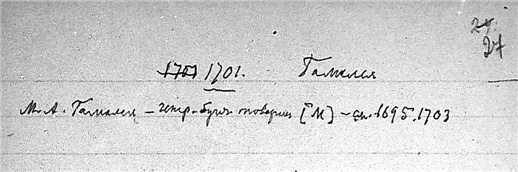 27
1701 1701. Гамалея
М. А. Гамалея – генр. бунч. товариш [М] – сп. 1695. 1703